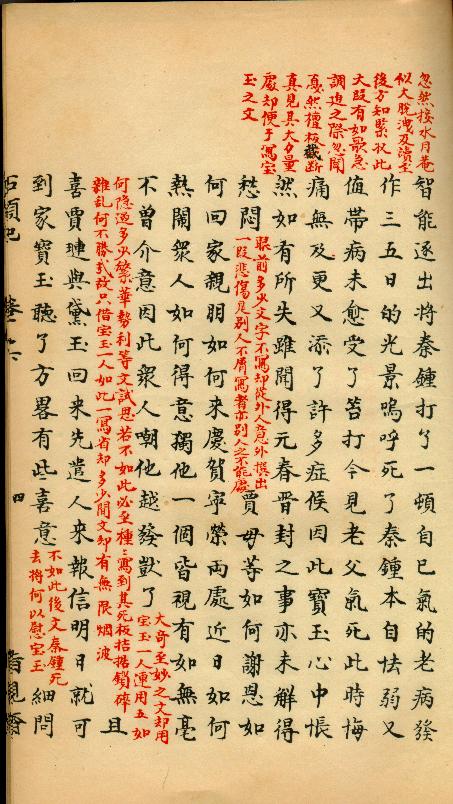 忽然接水月菴
似大脫洩及讀至
後方知緊收此
大段有如歌急
調迫之際忽聞
戞然檀板截斷
真見其大力量
處却便于寫宝
玉之文
智能逐出將秦鍾打了一頓自已氣的老病發
作三五日的光景嗚呼死了秦鍾本自怯弱又
值帶病未愈受了笞打今見老父氣死此時悔
痛無及更又添了許多症候因此寶玉心中悵
然如有所失雖聞得元春晋封之事亦未解得
愁悶
眼前多少文字不寫却從外人意外撰出
一段悲傷是別人不屑寫者亦別人之不能處
賈母等如何謝恩如
何回家親朋如何來慶賀寧榮兩處近日如何
熱鬧衆人如何得意獨他一個皆視有如無毫
不曾介意因此衆人嘲他越發獃了
大奇至妙之文却用
宝玉一人連用五如
何隱過多少繁華勢利等文試思若不如此必至種〻寫到其死板拮据鎖碎
雜乱何不勝哉故只借宝玉一人如此一寫省却多少閒文却有無限烟波
且
喜賈璉與黛玉回來先遣人來報信明日就可
到家寶玉聽了方畧有些喜意
不如此後文秦鍾死
去將何以慰宝玉
細問
四